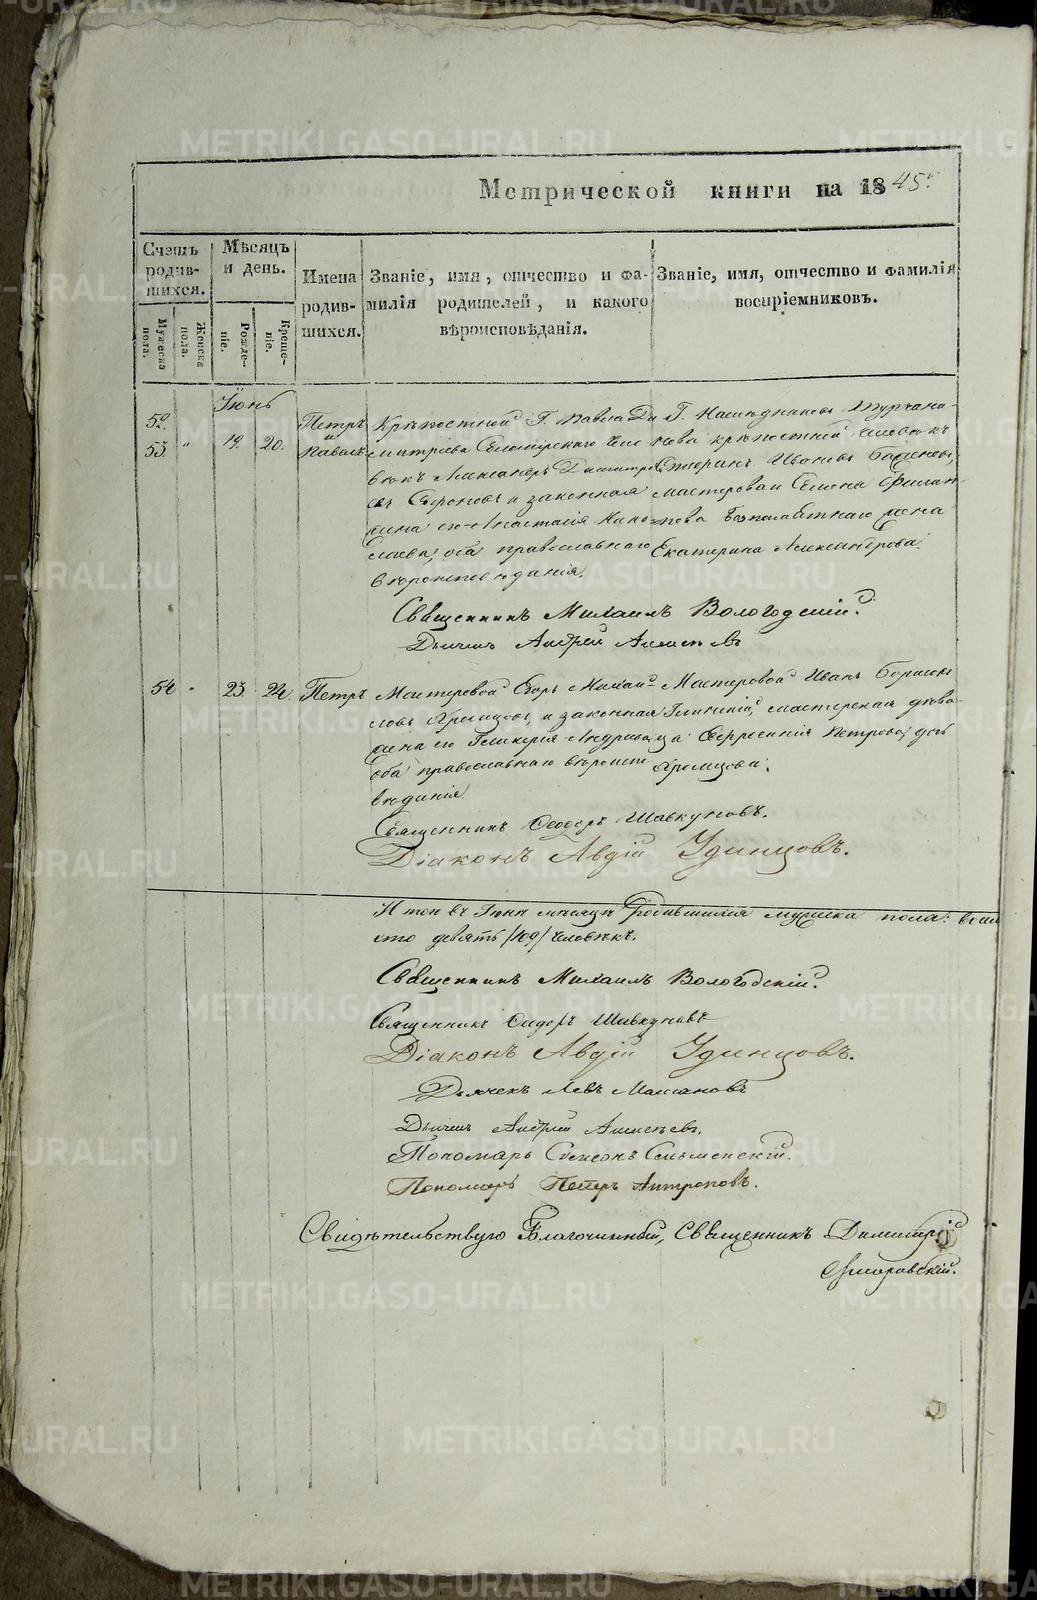 METRIKI.GASO-URAL.RU
Метрической книги на 1845й
Счетъ родившихся.
Мѣсяцъ и день.
Имена родившихся.
Званіе, имя, отчество и фамилія родителей, и какого вѣроисповѣданія.
Званіе, имя, отчество и фамилія воспріемниковъ.
Мужеска пола.
Женска пола.
Рожденіе.
Крещеніе.
Іюнь
52.
53. " 19. 20.
Петръ и Павелъ
Крѣпостной Г. Павла Ди-
митріева Соломірскаго чело-
вѣкъ Александръ Димитрі-
евъ Сафоновъ и законная
жена его Анастасія Нико-
лаева, оба православнаго
вѣроисповѣданія.
Г. Наслѣдниковъ Турчани-
нова крѣпостной человѣкъ
Иванов
мастероваи
жена
Екатерина Александрова.
Священникъ Михаилъ Вологодскій.
Дьячекъ Андрей Алексѣевъ
54 " 23 24. Петръ
Мастеровой Егоръ Михаи-
ловъ Хромцовъ, и законная
жена его Гликерія Андреева,
оба православнаго вѣроиспо-
вѣданія.
Мастеровой Иванъ Борисовъ
Глинскій, мастерская дѣви-
ца Петрова дочь
Хромцова.
Священникъ Ѳеодоръ Шавкуновъ.
Діаконъ Авдій Удинцовъ.
Итого въ Іюнѣ мѣсяцѣ родившихся мужеска пола:
сто девять /109/ человѣкъ.
Священникъ Михаилъ Вологодскій.
Священникъ Ѳеодоръ Шавкуновъ
Діаконъ Авдій Удинцовъ.
Дьячекъ Левъ
Дьячекъ Андрей Алексѣевъ.
Пономарь Симеонъ Сельменскій.
Пономарь Петръ Антроповъ.
Свидѣтельствую Благочинный, Священникъ Димитрій